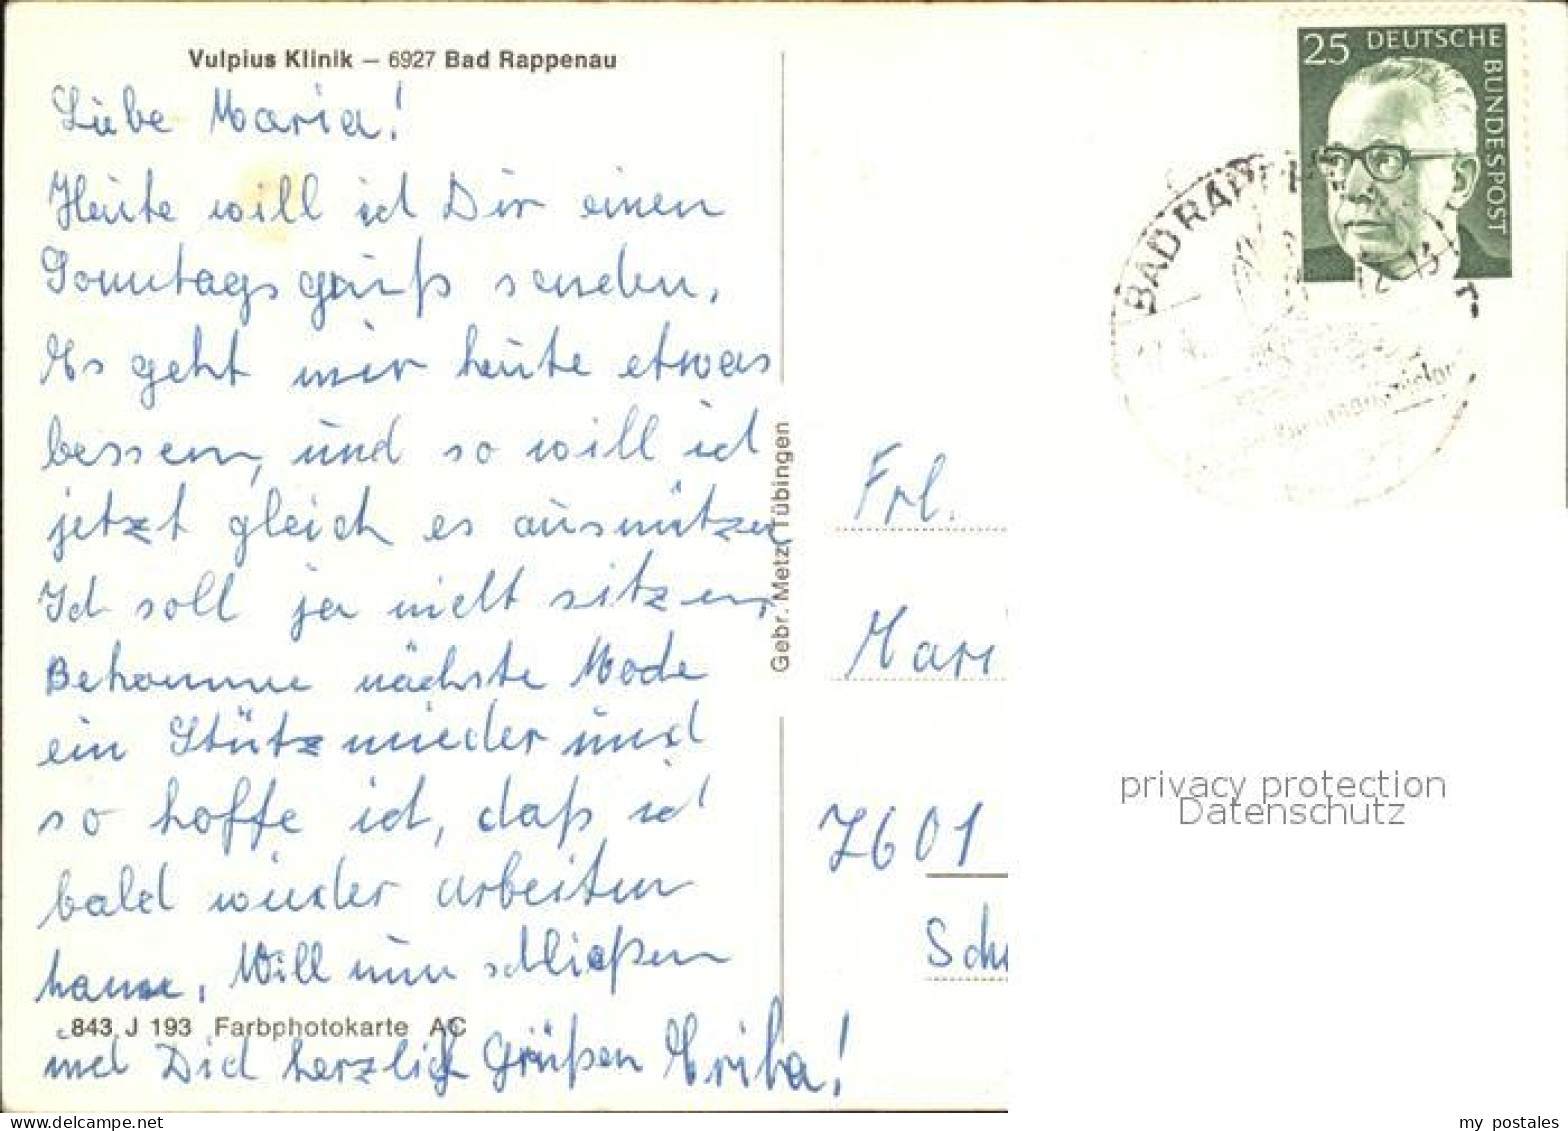 Vulpius Klinik – 6927 Bad Rappenau
Liebe Maria!
Heute will ich Dir einen
Sonntagsgruß senden.
Es geht mir heute etwas
bessern, und so will ich
jetzt gleich es ausnützen
Ich soll ja nicht sitzen,
Bekomme nächste Woche
ein Stützmieder und
so hoffe ich, daß ich
bald wieder arbeiten
kann. Will nun schließen
843 J 193 Farbphotokarte AC
und Dich herzlich Grüßen Erika!
Gebr. Metz, Tübingen
25 DEUTSCHE
BUNDESPOST
BAD RAPPENAU
Frl.
Mari
7601
Sch
privacy protection
Datenschutz
my postales